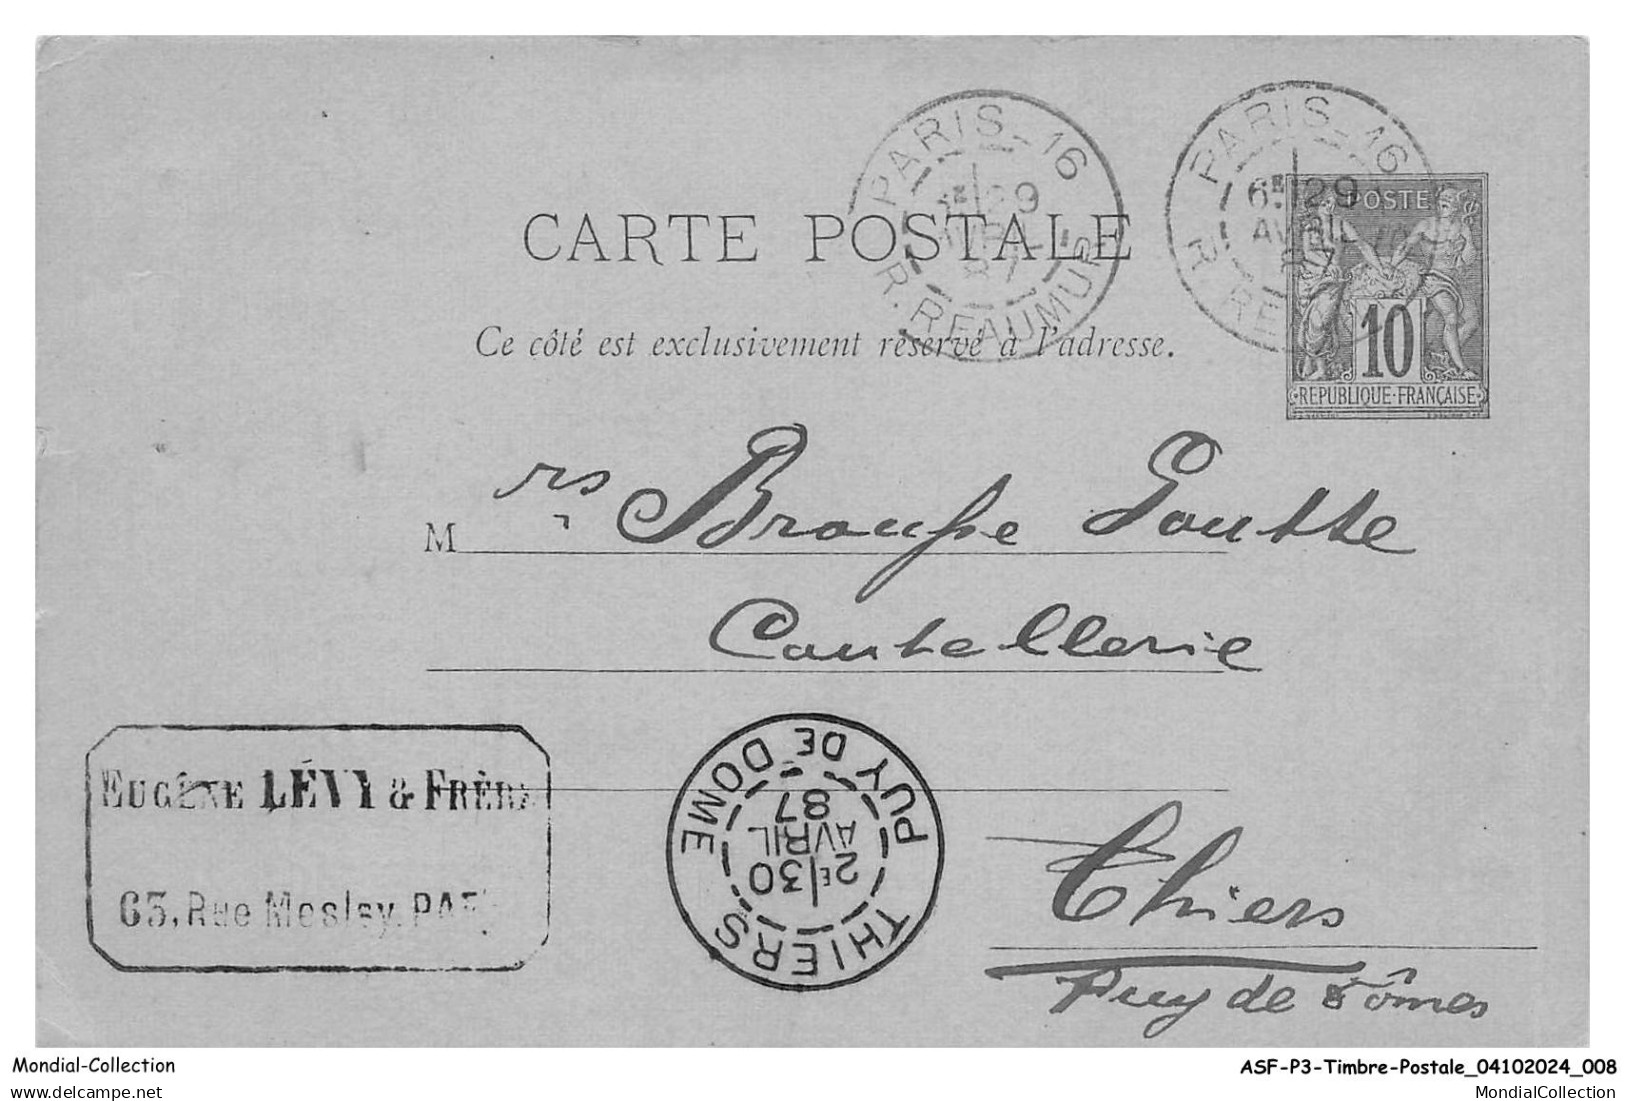 PARIS-16
E 29
87
R. REAUMUR
PARIS-16
6E 29
AVRIL
87
R. RE
POSTE
10
REPUBLIQUE-FRANÇAISE
CARTE POSTALE
Ce côté est exclusivement réservé à l'adresse.
M rs Broupe Goutte
Coutellerie
EUGÈNE LÉVY & FRÈRE
63, Rue Meslay, PA
THIERS
2E 30
AVRIL
87
PUY DE DOME
Thiers
Puy de Dômes
Mondial-Collection
ASF-P3-Timbre-Postale_04102024_008
delcampe.net
MondialCollection